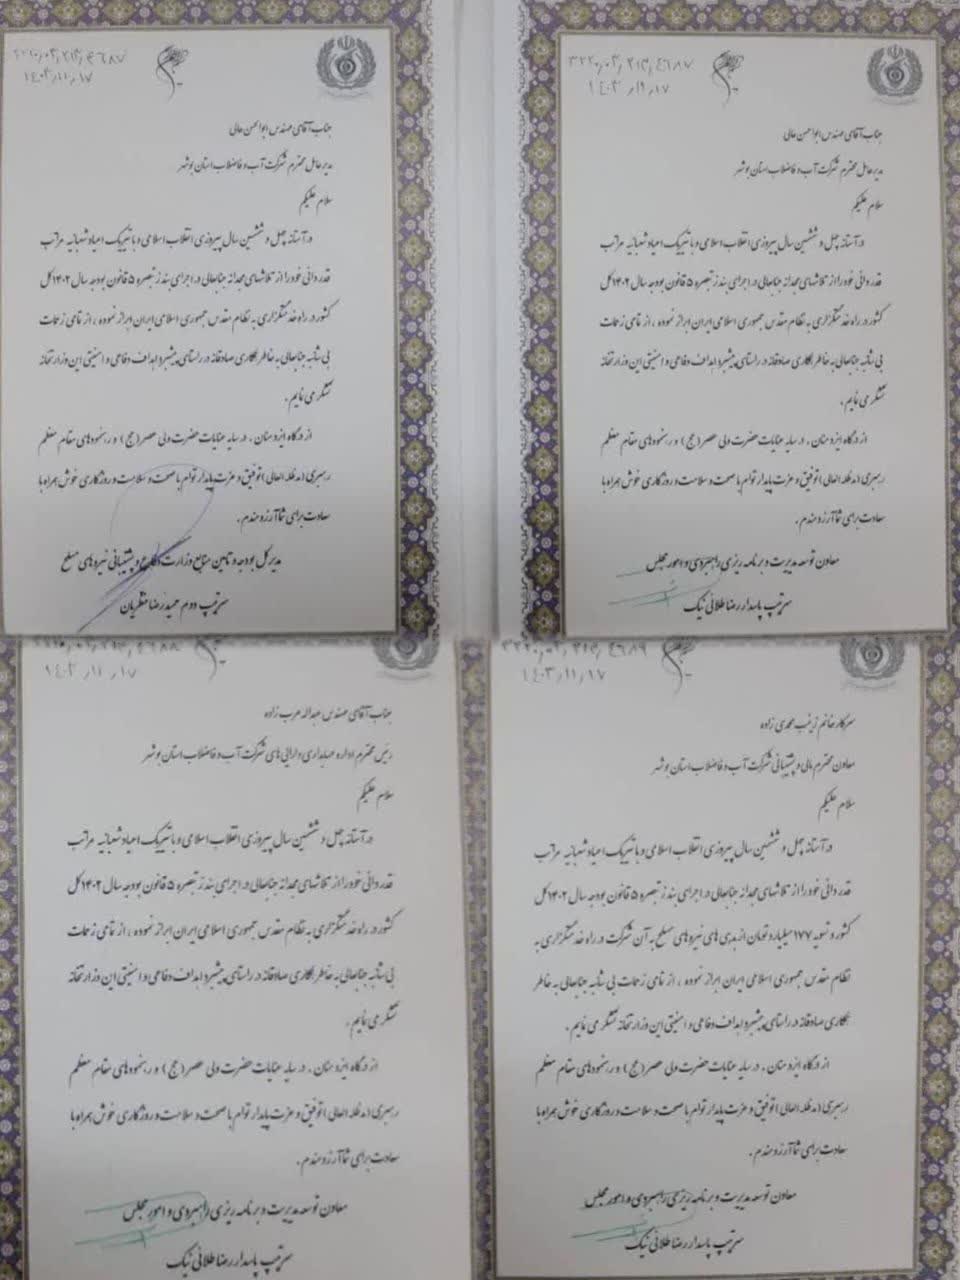 ۳۲۲۰/۰۳/۲۱۴/۴۶۸۷
۱۴۰۳/۱۱/۱۷
جناب آقای مهندس ابوالحسن عالی
مدیرعامل محترم شرکت آب و فاضلاب استان بوشهر
سلام علیکم
در آستانه چهل و ششمین سال پیروزی انقلاب اسلامی و با تبریک اعیاد شعبانیه مراتب
قدردانی خود را از تلاشهای مجدانه جنابعالی در اجرای بند ز تبصره ۵ قانون بودجه سال ۱۴۰۲ کل
کشور در راه خدمتگزاری به نظام مقدس جمهوری اسلامی ایران ابراز نموده ، از تمامی زحمات
بی شائبه جنابعالی به خاطر همکاری صادقانه در راستای پیشبرد اهداف دفاعی و امنیتی این وزارتخانه
تشکر می نمایم .
از درگاه ایزد منان ، در سایه عنایات حضرت ولی عصر (عج) و رهنمودهای مقام معظم
رهبری (مدظله العالی) توفیق و عزت پایدار توام با صحت و سلامت و روزگاری خوش همراه با
سعادت برای شما آرزومندم .
معاون توسعه مدیریت و برنامه ریزی راهبردی و امور مجلس
سرتیپ پاسدار رضا طلائی نیک
۳۲۲۰/۰۳/۲۱۴/۴۶۸۷
۱۴۰۳/۱۱/۱۷
جناب آقای مهندس ابوالحسن عالی
مدیرعامل محترم شرکت آب و فاضلاب استان بوشهر
سلام علیکم
در آستانه چهل و ششمین سال پیروزی انقلاب اسلامی و با تبریک اعیاد شعبانیه مراتب
قدردانی خود را از تلاشهای مجدانه جنابعالی در اجرای بند ز تبصره ۵ قانون بودجه سال ۱۴۰۲ کل
کشور در راه خدمتگزاری به نظام مقدس جمهوری اسلامی ایران ابراز نموده ، از تمامی زحمات
بی شائبه جنابعالی به خاطر همکاری صادقانه در راستای پیشبرد اهداف دفاعی و امنیتی این وزارتخانه
تشکر می نمایم .
از درگاه ایزد منان ، در سایه عنایات حضرت ولی عصر (عج) و رهنمودهای مقام معظم
رهبری (مدظله العالی) توفیق و عزت پایدار توام با صحت و سلامت و روزگاری خوش همراه با
سعادت برای شما آرزومندم .
مدیرکل بودجه و تامین منابع وزارت دفاع و پشتیبانی نیروهای مسلح
سرتیپ دوم حمیدرضا منتظریان
۳۲۲۰/۰۳/۲۱۴/۴۶۸۹
۱۴۰۳/۱۱/۱۷
سرکار خانم زینب محمدی زاده
معاون محترم مالی و پشتیبانی شرکت آب و فاضلاب استان بوشهر
سلام علیکم
در آستانه چهل و ششمین سال پیروزی انقلاب اسلامی و با تبریک اعیاد شعبانیه مراتب
قدردانی خود را از تلاشهای مجدانه جنابعالی در اجرای بند ز تبصره ۵ قانون بودجه سال ۱۴۰۲ کل
کشور و تسویه ۱۷۷ میلیارد تومان از بدهی های نیروهای مسلح به آن شرکت در راه خدمتگزاری به
نظام مقدس جمهوری اسلامی ایران ابراز نموده ، از تمامی زحمات بی شائبه جنابعالی به خاطر
همکاری صادقانه در راستای پیشبرد اهداف دفاعی و امنیتی این وزارتخانه تشکر می نمایم .
از درگاه ایزد منان ، در سایه عنایات حضرت ولی عصر (عج) و رهنمودهای مقام معظم
رهبری (مدظله العالی) توفیق و عزت پایدار توام با صحت و سلامت و روزگاری خوش همراه با
سعادت برای شما آرزومندم .
معاون توسعه مدیریت و برنامه ریزی راهبردی و امور مجلس
سرتیپ پاسدار رضا طلائی نیک
۳۲۲۰/۰۳/۲۱۴/۴۶۸۸
۱۴۰۳/۱۱/۱۷
جناب آقای مهندس عبداله عرب زاده
رئیس محترم اداره حسابداری دارایی های شرکت آب و فاضلاب استان بوشهر
سلام علیکم
در آستانه چهل و ششمین سال پیروزی انقلاب اسلامی و با تبریک اعیاد شعبانیه مراتب
قدردانی خود را از تلاشهای مجدانه جنابعالی در اجرای بند ز تبصره ۵ قانون بودجه سال ۱۴۰۲ کل
کشور در راه خدمتگزاری به نظام مقدس جمهوری اسلامی ایران ابراز نموده ، از تمامی زحمات
بی شائبه جنابعالی به خاطر همکاری صادقانه در راستای پیشبرد اهداف دفاعی و امنیتی این وزارتخانه
تشکر می نمایم .
از درگاه ایزد منان ، در سایه عنایات حضرت ولی عصر (عج) و رهنمودهای مقام معظم
رهبری (مدظله العالی) توفیق و عزت پایدار توام با صحت و سلامت و روزگاری خوش همراه با
سعادت برای شما آرزومندم .
معاون توسعه مدیریت و برنامه ریزی راهبردی و امور مجلس
سرتیپ پاسدار رضا طلائی نیک